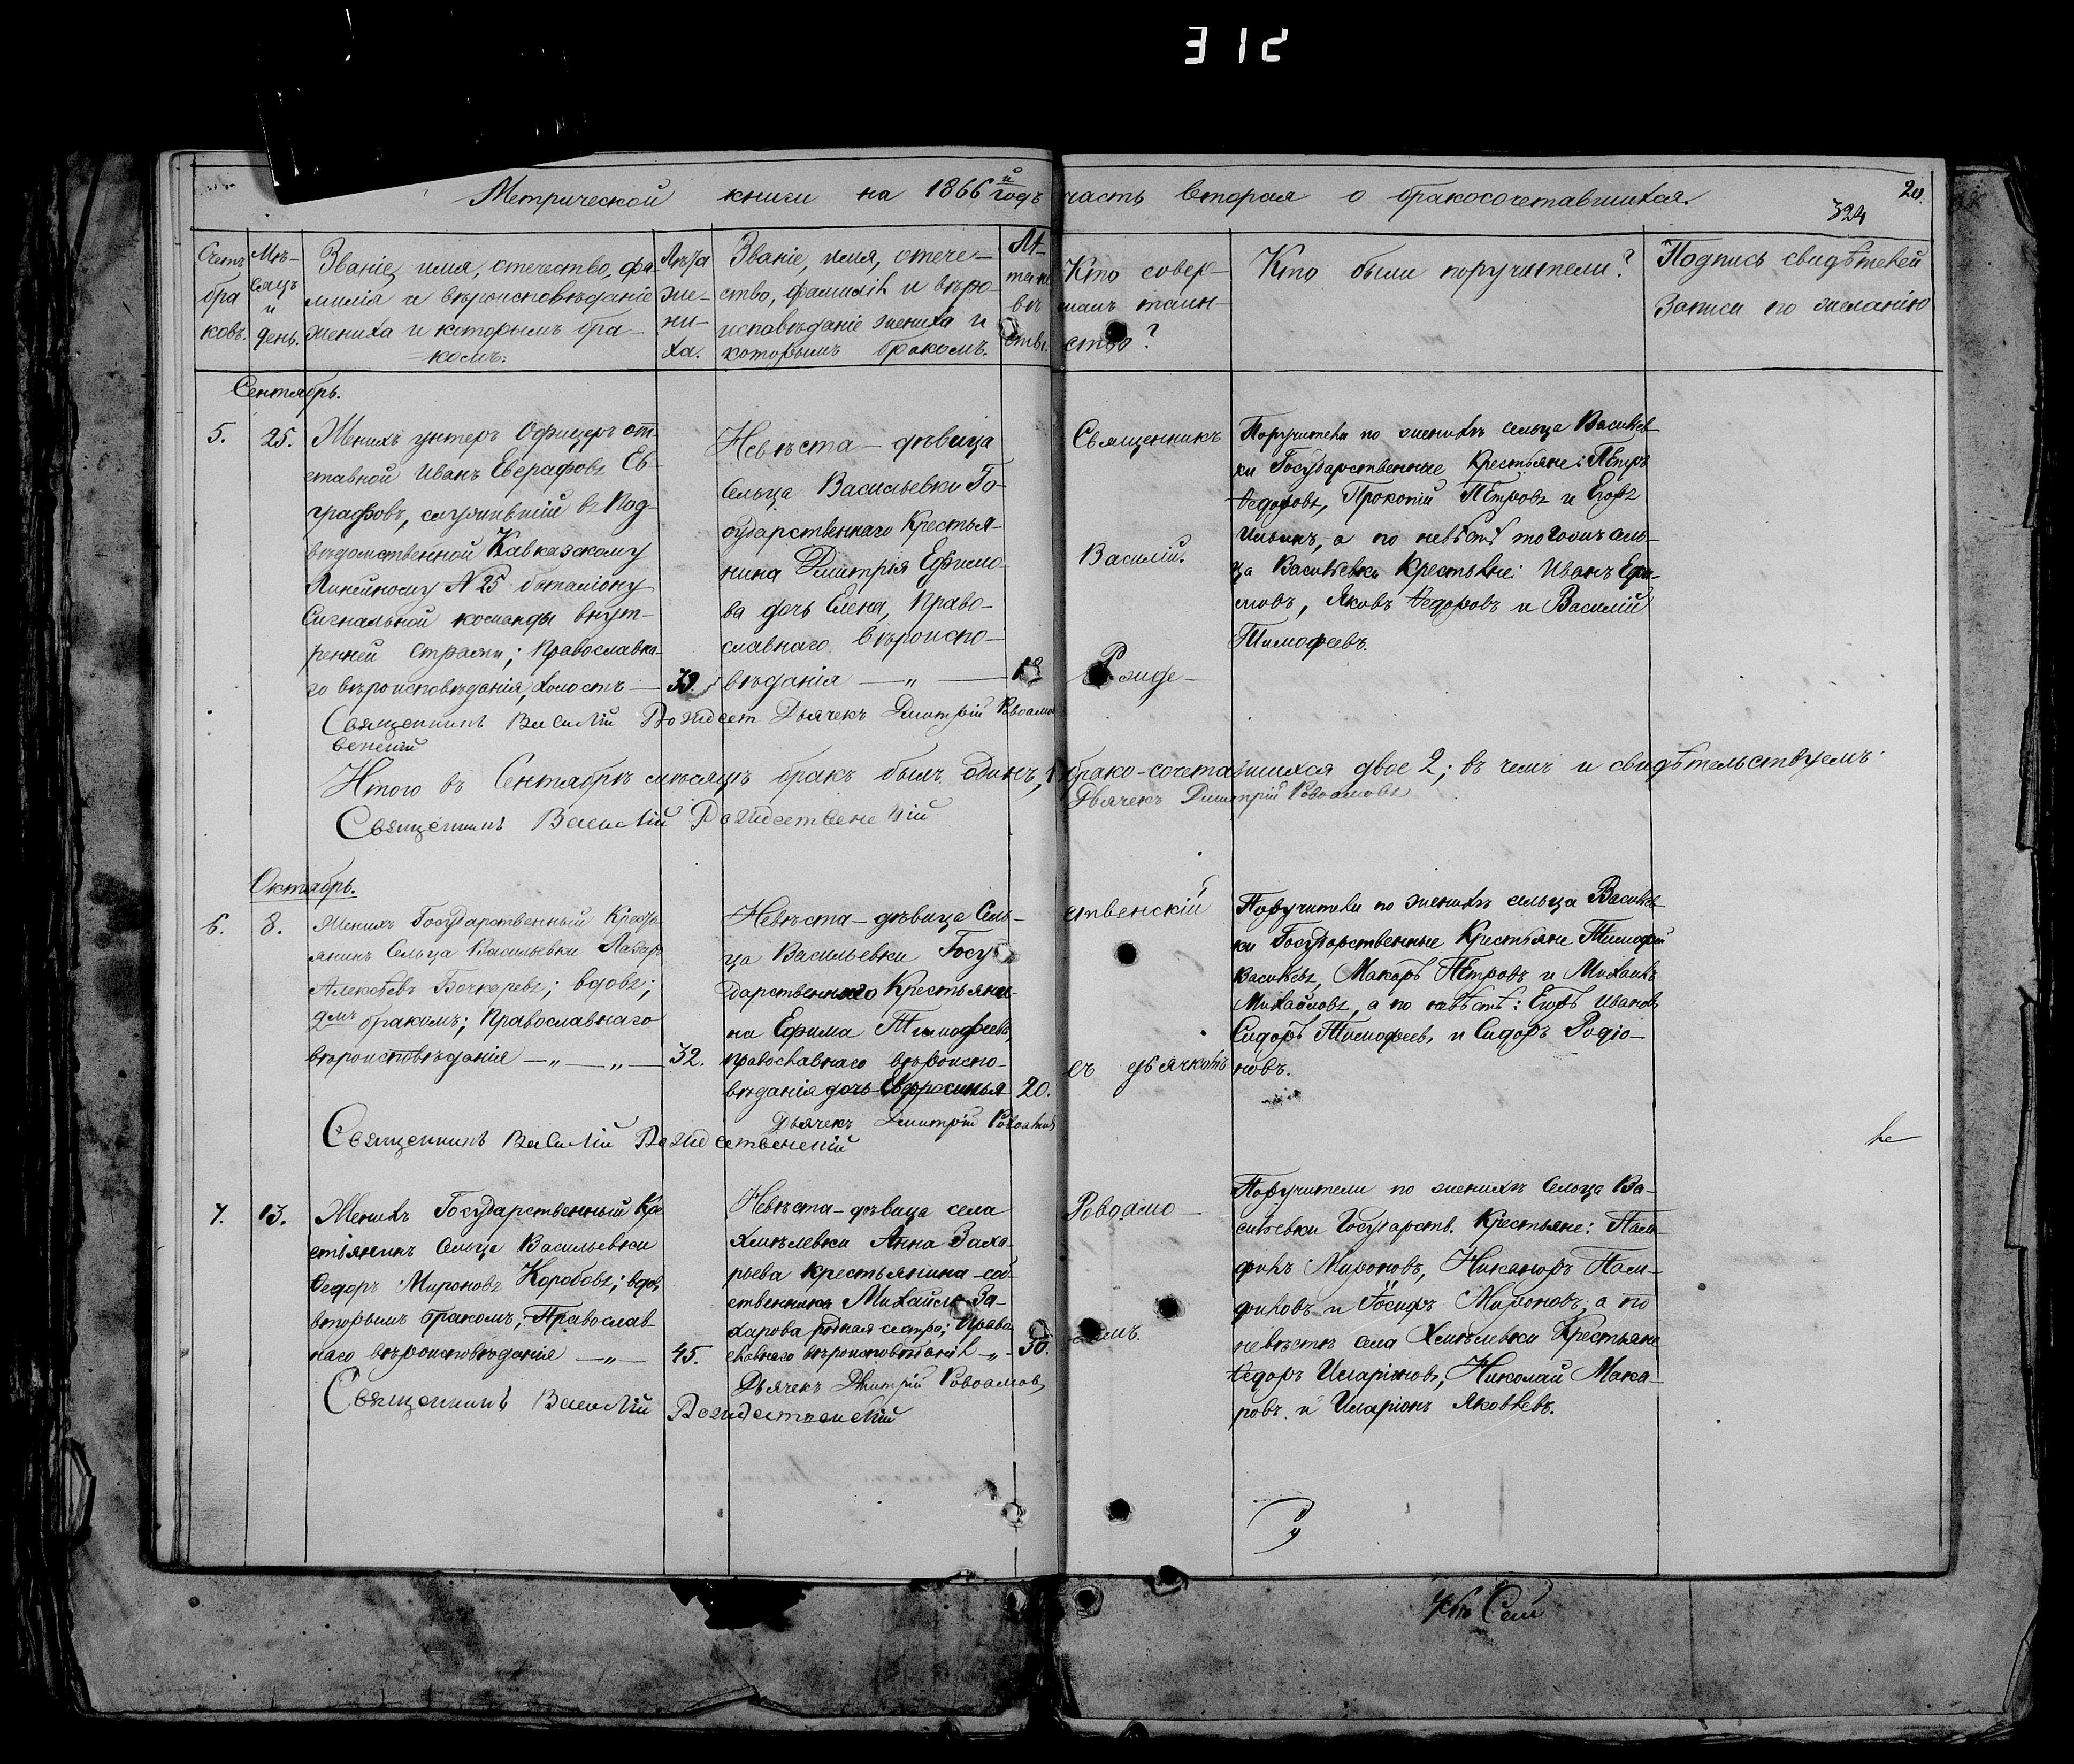 312
Метрической книги на 1866й годъ часть вторая о бракосочетавшихся.
20.
324
Счетъ браковъ.
Мѣсяцъ и день.
Званіе, имя, отечество, фа-
милія и вѣроисповѣданіе
жениха и которымъ бра-
комъ.
Лѣта
же-
ни-
ха.
Званіе, имя, отече-
ство, фамилія и вѣро-
исповѣданіе жениха и
которымъ бракомъ.
Лѣ-
та не-
вѣ-
сты.
Кто совер-
шалъ таин-
ство?
Кто были поручители?
Подпись свидѣтелей
записи по желанію
Сентябрь.
5.
25.
Женихъ унтеръ Офицеръ от-
ставной Иванъ Евграфовъ Ев-
графовъ, служившій въ Под-
вѣдомственной Кавказскому
Линейному № 25 баталіону
Сигнальной команды внут-
ренней стражи; Православна-
го вѣроисповѣданія, холостъ —
39.
Невѣста — дѣвица
Сельца Васильевки Го-
сударственнаго Крестья-
нина Дмитрія Ефимо-
ва дочь Елена, Право-
славнаго вѣроиспо-
вѣданія — „ —
18
Священникъ
Василій
Рожде-
Поручители по женихѣ сельца Васильев-
ки Государственные Крестьяне: Пётръ
Ѳедоровъ, Прокопій Пётровъ и Егоръ
Ильинъ, а по невѣстѣ тогожъ сель-
ца Васильевки Крестьяне: Иванъ Ефи-
мовъ, Яковъ Ѳедоровъ и Василій
Тимофеевъ.
Священникъ Василій Рождест Дьячекъ Дмитрій Ровоамов
венскій
Итого въ Сентябрѣ мѣсяцѣ бракъ былъ одинъ, 1 брако-сочетавшихся двое 2; въ чемъ и свидѣтельствуемъ.
Дьячекъ Дмитрій Ровоамовъ
Священникъ Василій Рождественскій
Октябрь.
6.
8.
Женихъ Государственный Кресть-
янинъ Сельца Васильевки Лазарь
Алексѣевъ Бочкаревъ; вдовъ;
2мъ бракомъ; Православнаго
вѣроисповѣданія — „ — „ —
32.
Невѣста — дѣвица Сель-
ца Васильевки Госу-
дарственнаго Крестьяни-
на Ефима Тимофеева,
православнаго вѣроиспо-
вѣданія дочь Евфросинья
20.
ственскій
съ дьячкомъ
Поручители по женихѣ сельца Васильев-
ки Государственные Крестьяне Тимофей
Васильевъ, Макаръ Пётровъ и Михаилъ
Михайловъ, а по невѣстѣ: Егоръ Ивановъ,
Сидоръ Тимофеевъ, и Сидоръ Родіо-
новъ.
Дьячекъ Дмитрій Ровоамов
Священникъ Василій Рождественскій
7.
13.
Женихъ Государственный Кре-
стьянинъ Сельца Васильевки
Ѳедоръ Мироновъ Коробовъ; вдов,
вторымъ бракомъ, Православ-
наго вѣроисповѣданія — „ —
45.
Невѣста — дѣвица села
Хмѣлевки Анна Заха-
рьева крестьянина-соб-
ственника Михайла За-
харова родная сестра; Право-
славнаго вѣроисповѣданія — „ —
30.
Ровоамо-
вымъ.
Поручители по женихѣ Сельца Ва-
сильевки Государств. Крестьяне: Пам-
филъ Мироновъ, Никаноръ Пам-
филовъ и Іосифъ Мироновъ, а по
невѣстѣ села Хмѣлевки Крестьяне
Ѳедоръ Иларіоновъ, Николай Мака-
ровъ и Иларіонъ Яковлевъ.
Дьячекъ Дмитрій Ровоамовъ
Священникъ Василій Рождественскій